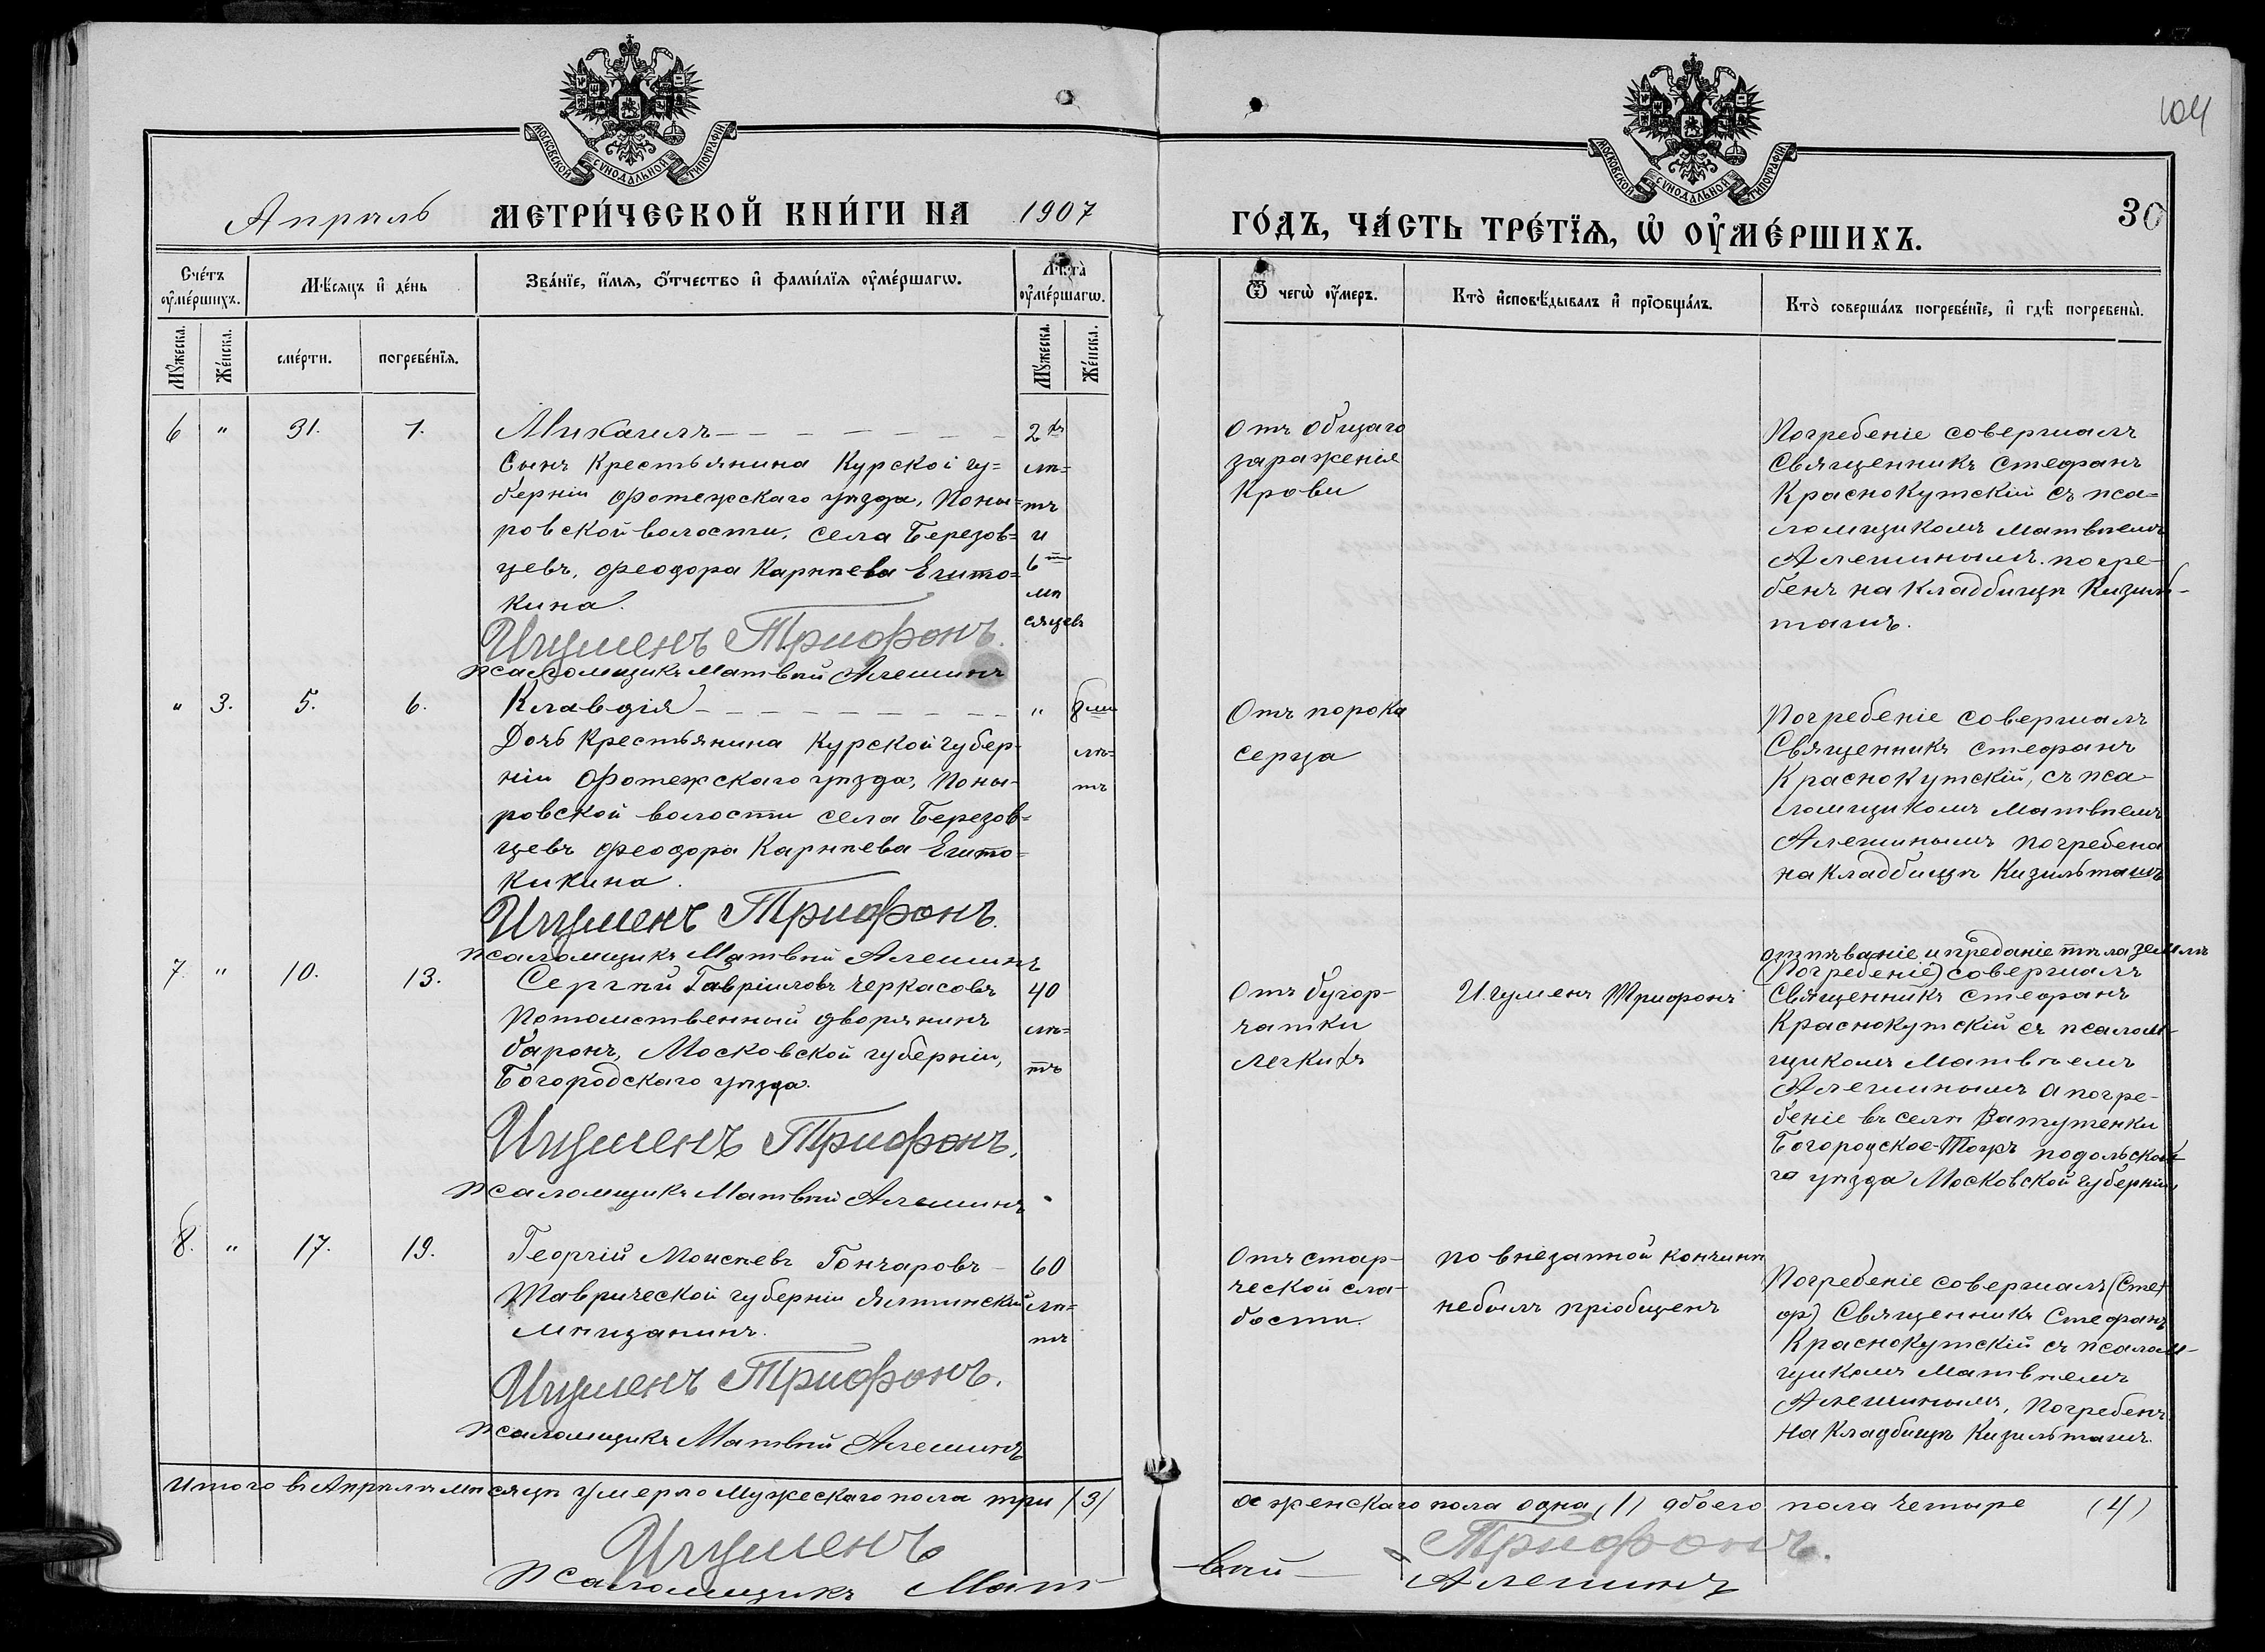 104
МОСКОВСКОЙ СѴНОДАЛЬНОЙ ТИПОГРАФІИ
МОСКОВСКОЙ СѴНОДАЛЬНОЙ ТИПОГРАФІИ
Апрѣль МЕТРИ́ЧЕСКОЙ КНИ́ГИ НА 1907
ГО́ДЪ, ЧА́СТЬ ТРЕ́ТЇѦ, Ѡ҆ ОУ҆МЕ́РШИХЪ.
30
Сче́тъ оу҆ме́ршихъ.
Мѣ́сяцъ и҆ де́нь
Зва́нїе, и҆́мѧ, ѻ҆́тчество и҆ фамѝлїѧ оу҆ме́ршагѡ.
Лѣ́та̀ оу҆ме́ршагѡ.
Ѿ чегѡ̀ оу҆́меръ.
Кто̀ и҆сповѣ́дывалъ и҆ прїѡбща́лъ.
Кто̀ соверша́лъ погребе́нїе, и҆ гдѣ̀ погребены̀.
Мꙋ́жеска.
Же́нска.
сме́рти.
погребе́нїѧ.
Мꙋ́жеска.
Же́нска.
6 " 31. 1.
Михаилъ
Сынъ Крестьянина Курской гу=
берніи Фотежскаго уѣзда, Поны=
ровской волости, села Березов=
цевъ, Феодора Карнѣева Егито=
кина.
Игуменъ Трифонъ.
Псаломщикъ Матвѣй Алешинъ
2хъ
лѣ=
тъ
и
6ти
мѣ
сяцевъ
Отъ общаго
зараженія
крови
Погребеніе совершалъ
Священникъ Стефанъ
Краснокутскій съ пса=
ломщикомъ Матвѣемъ
Алешинымъ. погре-
бенъ на кладбищѣ Кизиль-
ташъ.
" 3. 5. 6.
Клавдія
Дочь Крестьянина Курской губер-
ніи Фотежскаго уѣзда, Поны-
ровской волости села Березов=
цевъ Феодора Карнѣева Егито=
кикина.
Игуменъ Трифонъ.
Псаломщикъ Матвѣй Алешинъ
" 8ми
лѣ=
тъ
Отъ порока
серца
Погребеніе совершалъ
Священникъ Стефанъ
Краснокутскій, съ пса-
ломщикомъ Матвѣемъ
Алешинымъ погребена
на кладбищѣ Кизильташъ
7. " 10. 13.
Сергѣй Гавріиловъ Черкасовъ
Потомственный дворянинъ
баронъ, Московской губерніи,
Богородскаго уѣзда.
Игуменъ Трифонъ.
Псаломщикъ Матвѣй Алешинъ
40
лѣ=
тъ
Отъ бугор-
чатки
легкихъ
Игуменъ Трифонъ
отпѣваніе и преданіе тѣла землѣ
(Погребеніе) совершалъ
Священникъ Стефанъ
Краснокутскій съ псалом-
щикомъ Матвѣемъ
Алешинымъ а погре-
беніе въ селѣ Ватутенки
Богородское-Тожъ подольска-
го уѣзда Московской губерніи
8. " 17. 19.
Георгій Моисѣевъ Гончаровъ
Таврической губерніи Ялтинскій
мѣщанинъ.
Игуменъ Трифонъ.
Псаломщикъ Матвѣй Алешинъ
60
лѣ=
тъ
Отъ стар-
ческой сла-
бости.
по внезапной кончинѣ
небылъ пріобщенъ
Погребеніе совершалъ (Сте
ф) Священникъ Стефанъ
Краснокутскій съ псалом-
щикомъ Матвѣемъ
Алешинымъ, Погребенъ
на кладбищѣ Кизильташъ.
Итого въ Апрѣлѣ мѣсяцѣ умерло Мужескаго пола три /3/
а женскаго пола одна /1/ обоего пола четыре (4)
Игуменъ Трифонъ.
Псаломщикъ Матвѣй Алешинъ